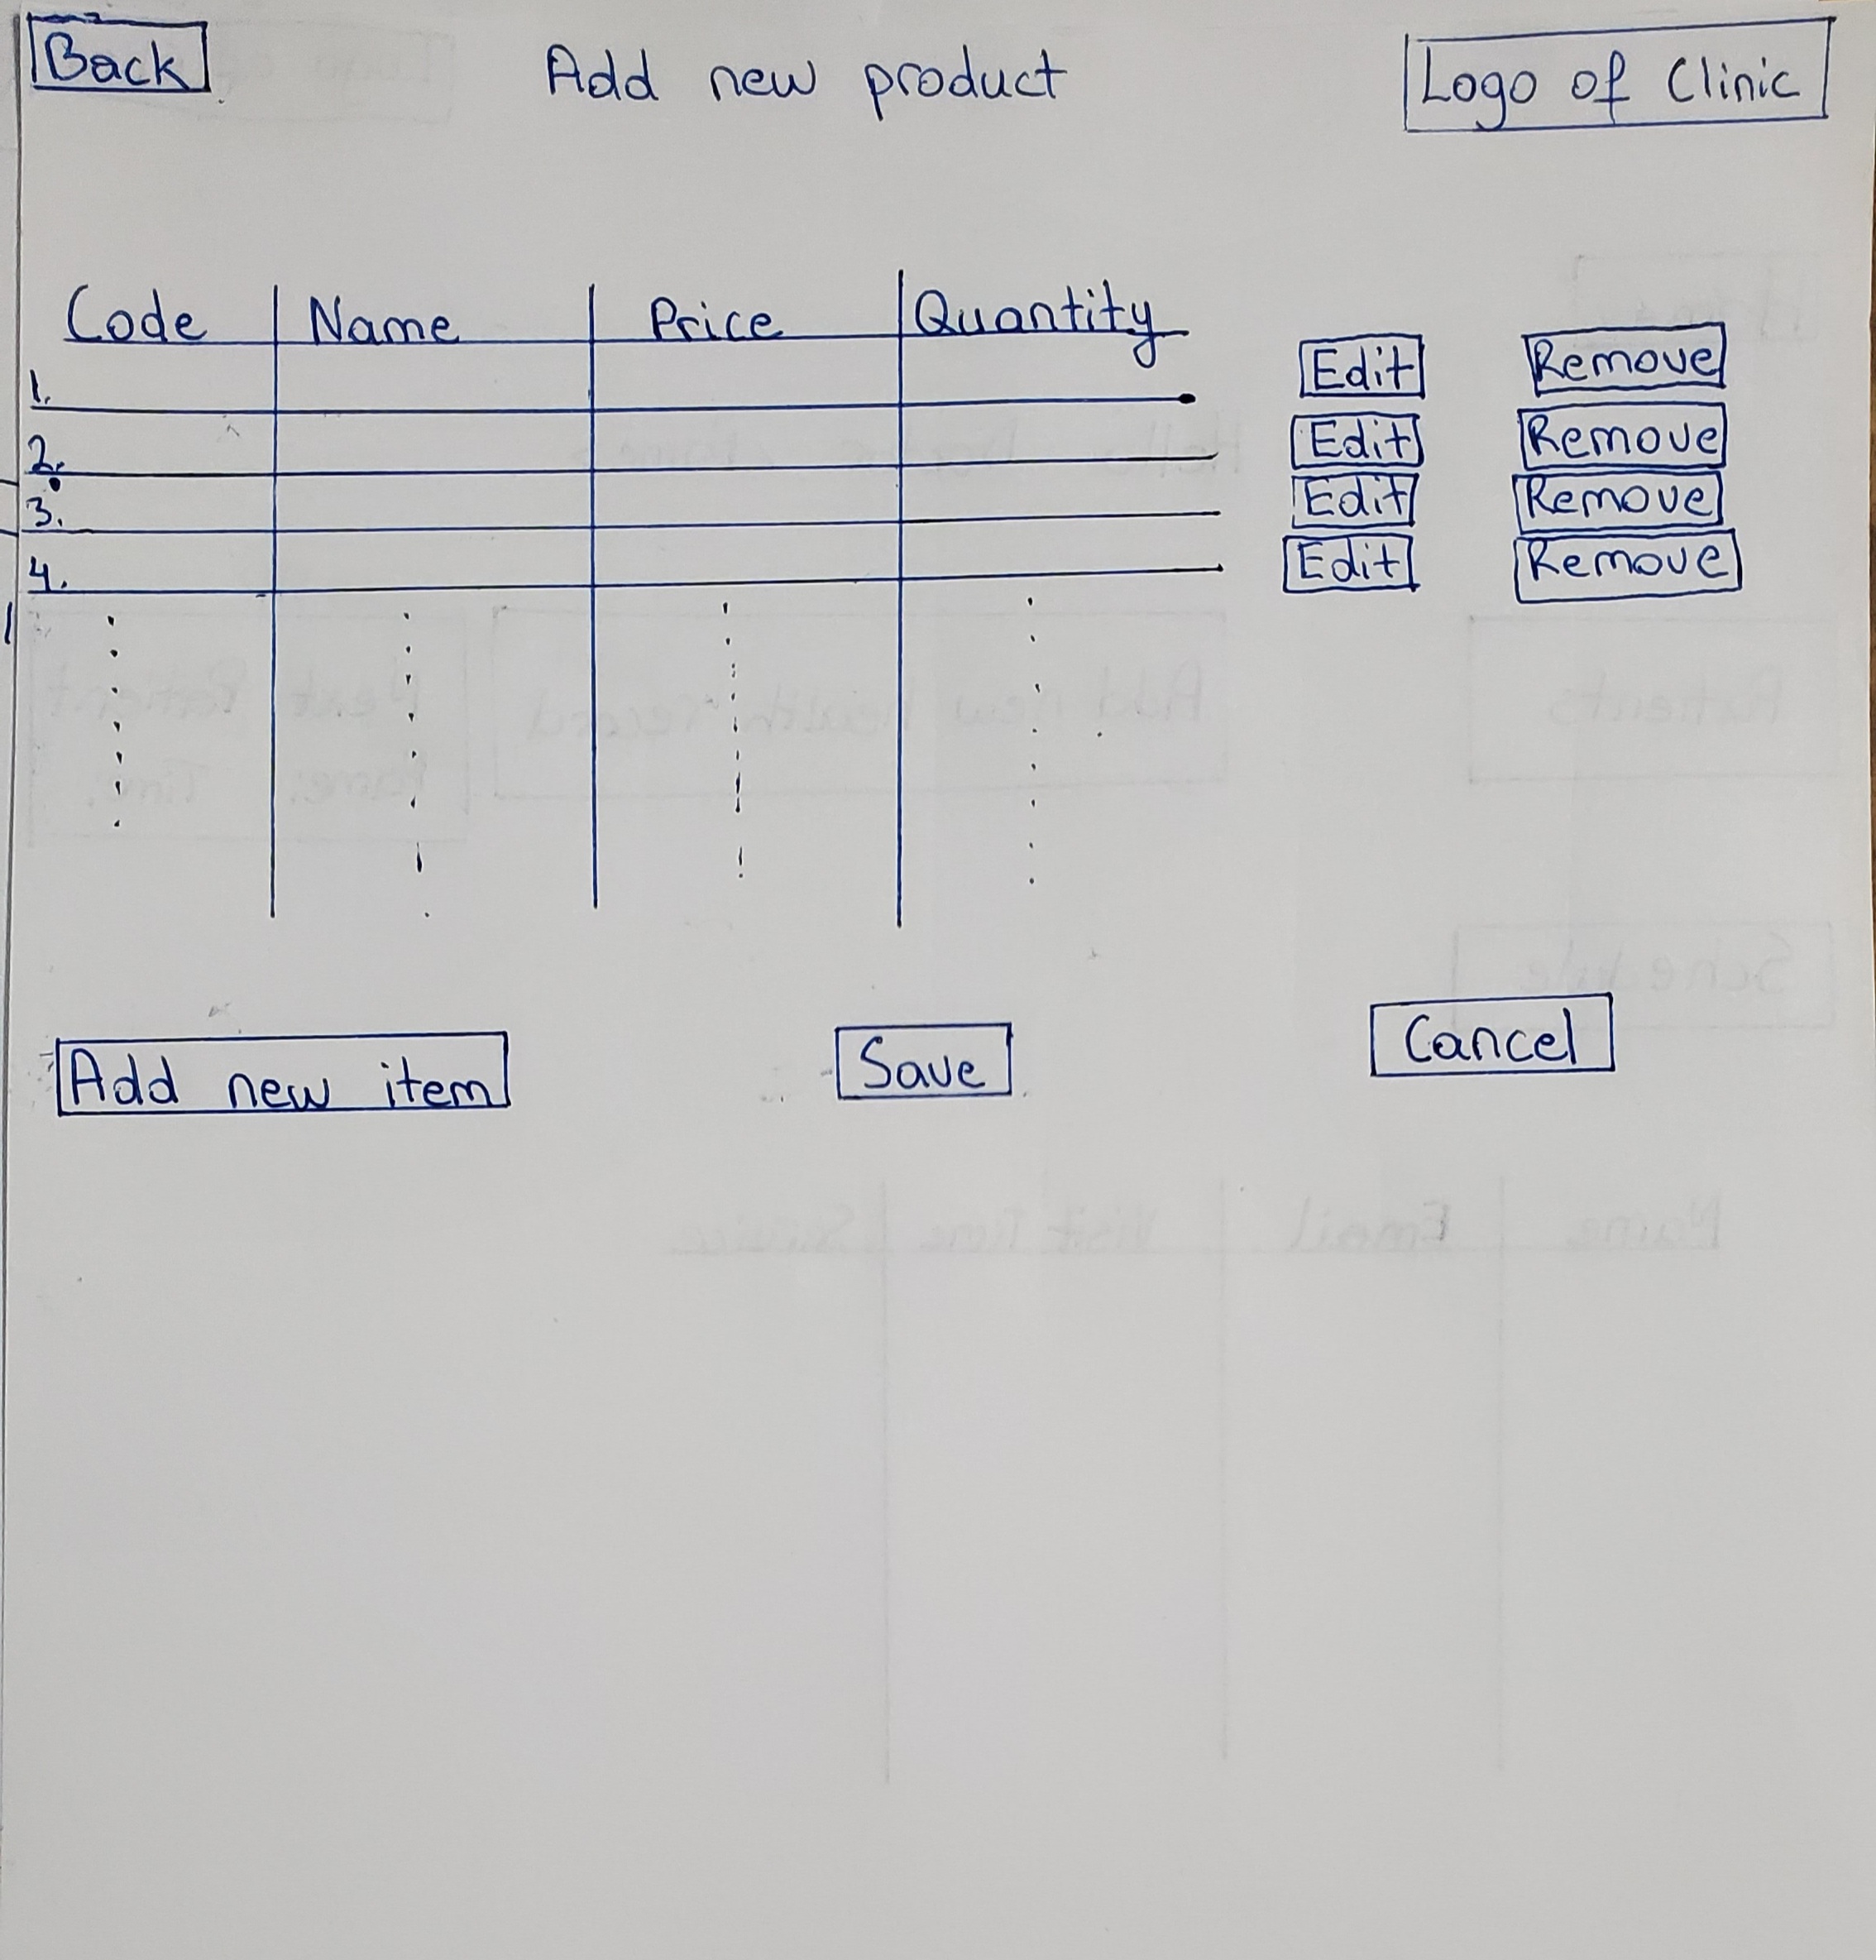 Back Add new product Logo of Clinic
Code Name Price Quantity
1. Edit Remove
2. Edit Remove
3. Edit Remove
4. Edit Remove
Add new item Save Cancel